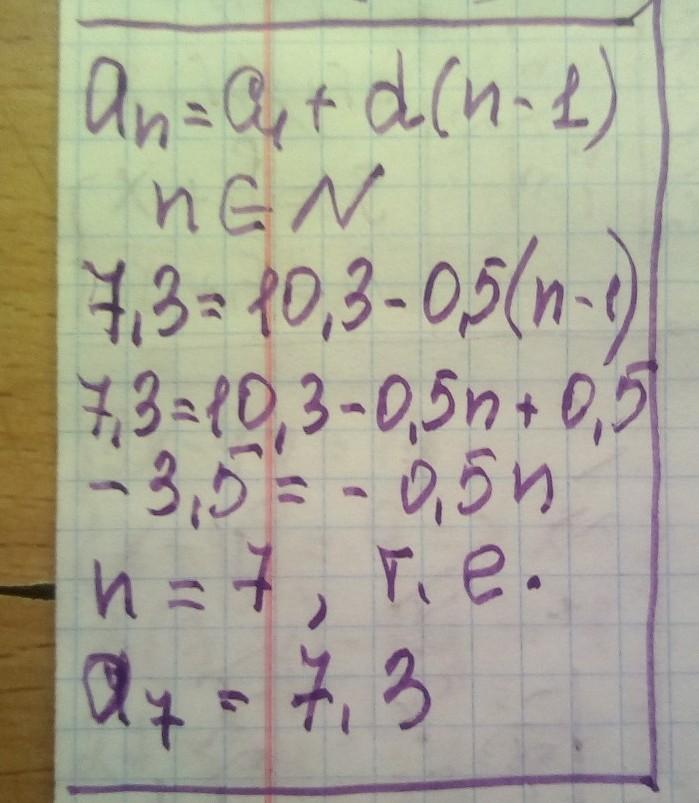 aₙ = a₁ + d(n - 1)
n ∈ N
7,3 = 10,3 - 0,5(n - 1)
7,3 = 10,3 - 0,5n + 0,5
- 3,5 = - 0,5n
n = 7, т. е.
a₇ = 7,3